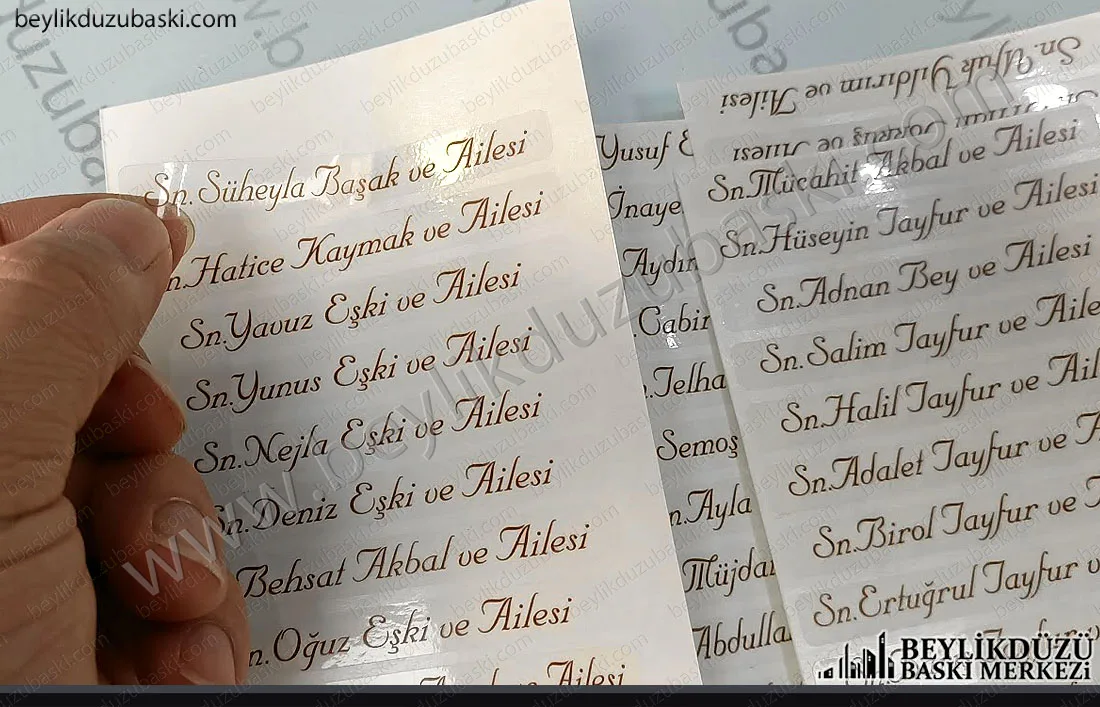 beylikduzubaski.com
Sn.Süheyla Başak ve Ailesi
n.Hatice Kaymak ve Ailesi
Sn.Yavuz Eşki ve Ailesi
Sn.Yunus Eşki ve Ailesi
Sn.Nejla Eşki ve Ailesi
Sn.Deniz Eşki ve Ailesi
Behsat Akbal ve Ailesi
n.Oğuz Eşki ve Ailesi
ve Ailesi
Yusuf
İnaye
Aydın
.Cabir
.Telha
Semoş
n.Ayla
Müjdat
Abdulla
Sn.Ufuk Yıldırım ve Ailesi
ve Ailesi
Sn.Mücahit Akbal ve Ailesi
Sn.Hüseyin Tayfur ve Ailesi
Sn.Adnan Bey ve Ailesi
Sn.Salim Tayfur ve Aile
Sn.Halil Tayfur ve Ail
Sn.Adalet Tayfur ve A
Sn.Birol Tayfur ve
Sn.Ertuğrul Tayfur v
www.beylikduzubaski.com
BEYLİKDÜZÜ
BASKI MERKEZİ